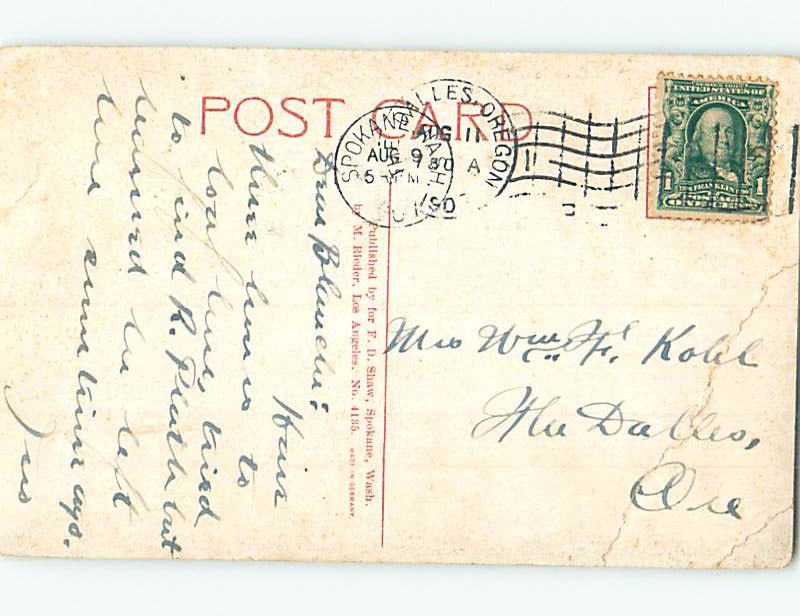 POST CARD
SPOKANE WASH.
AUG 9
5 PM
DALLES, OREGON
AUG 11
A
190
SERIES 1902
UNITED STATES OF
AMERICA
1 FRANKLIN 1
ONE CENT
Dear Blanche:
Have
three hours to
loaf here, tried
to find R. but
learned he left
here some time ago.
Published by for F. D. Shaw, Spokane, Wash.
by M. Rieder, Los Angeles. No. 4135. MADE IN GERMANY.
Mrs Wm. F. Kohl
The Dalles,
Ore